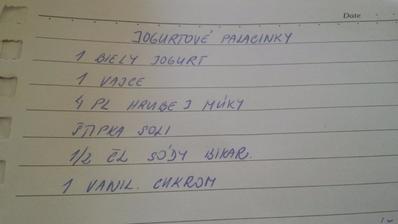 Date
JOGURTOVÉ PALACINKY
1 BIELY JOGURT
1 VAJCE
4 PL HRUBEJ MÚKY
ŠTIPKA SOLI
1/2 ČL SÓDY BIKAR.
1 VANIL. CUKROM